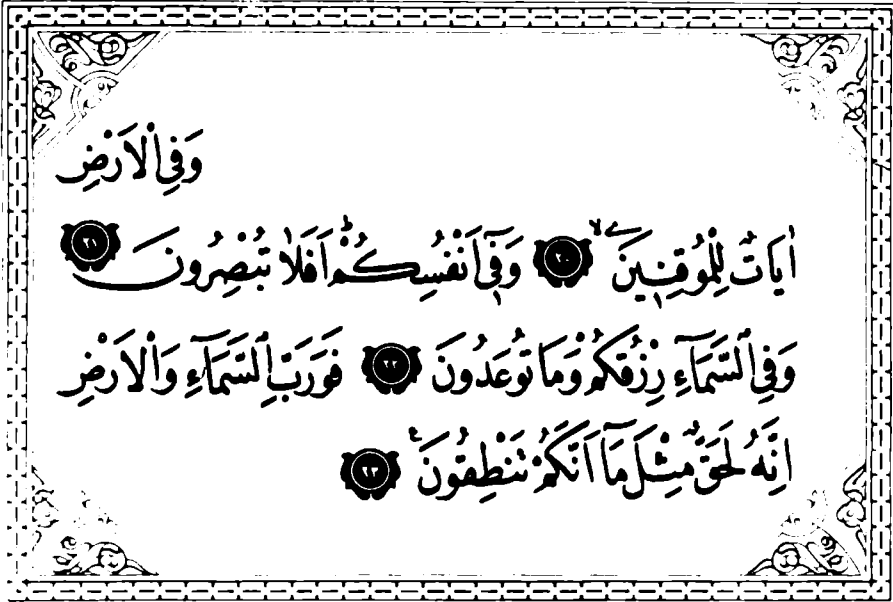 وَفِى الْاَرْضِ
اٰيَاتٌ لِلْمُوقِنٖينَۙ ﴿٢٠﴾ وَفٖٓى اَنْفُسِكُمْۜ اَفَلَا تُبْصِرُونَ ﴿٢١﴾
وَفِى السَّمَٓاءِ رِزْقُكُمْ وَمَا تُوعَدُونَ ﴿٢٢﴾ فَوَرَبِّ السَّمَٓاءِ وَالْاَرْضِ
اِنَّهُ لَحَقٌّ مِثْلَ مَٓا اَنَّكُمْ تَنْطِقُونَ ﴿٢٣﴾